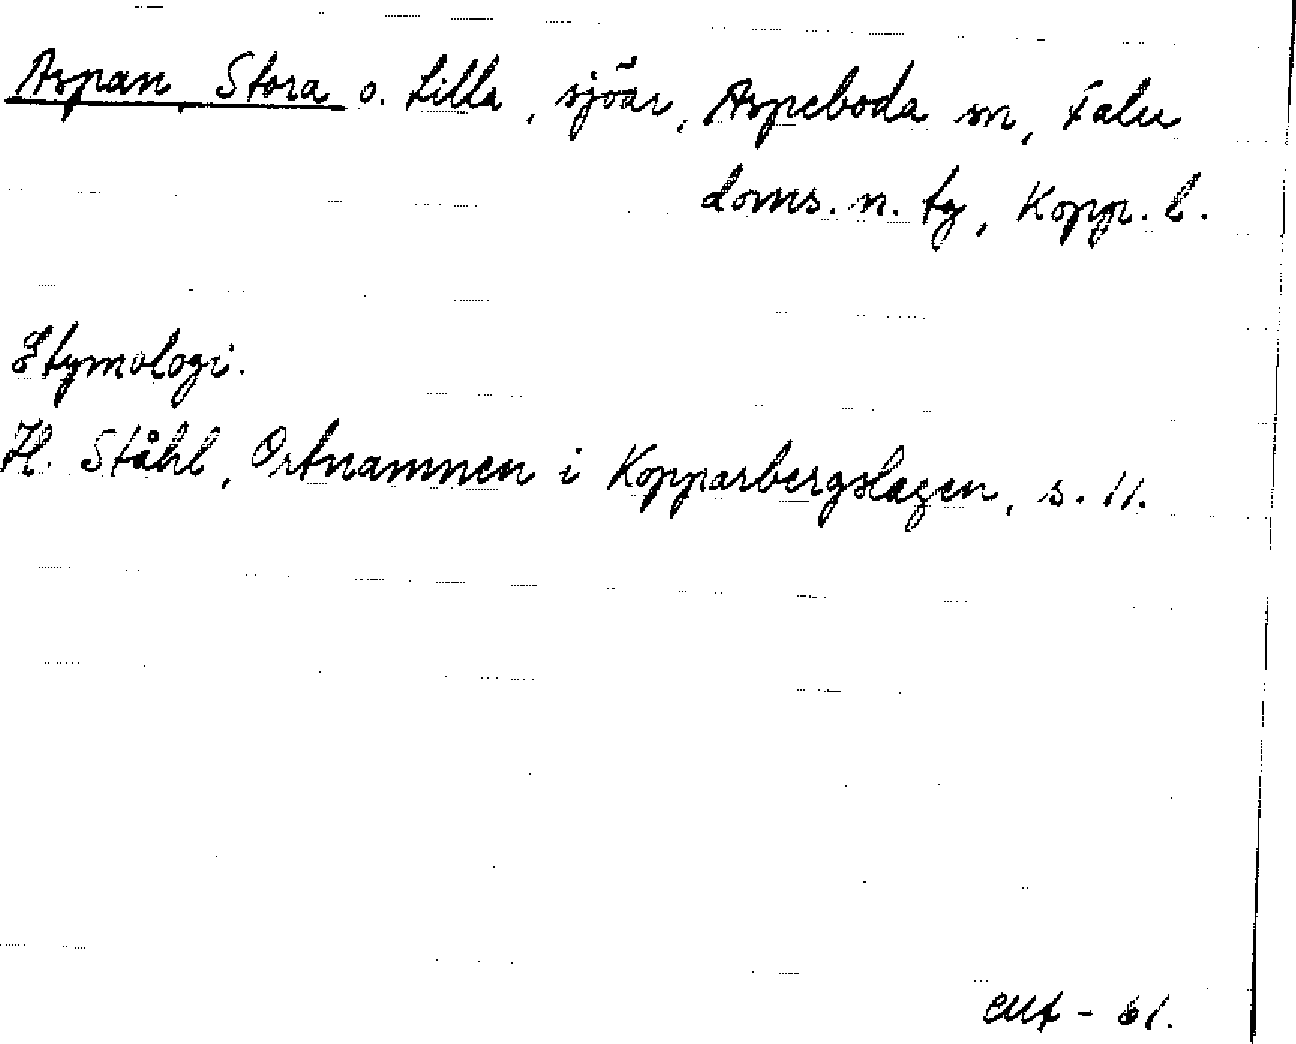 Aspan, Stora o. Lilla, sjöar, Aspeboda sn, Falu
doms. n. tg, Kopp. l.
Etymologi.
H. Ståhl, Ortnamnen i Kopparbergslagen, s. 11.
61.